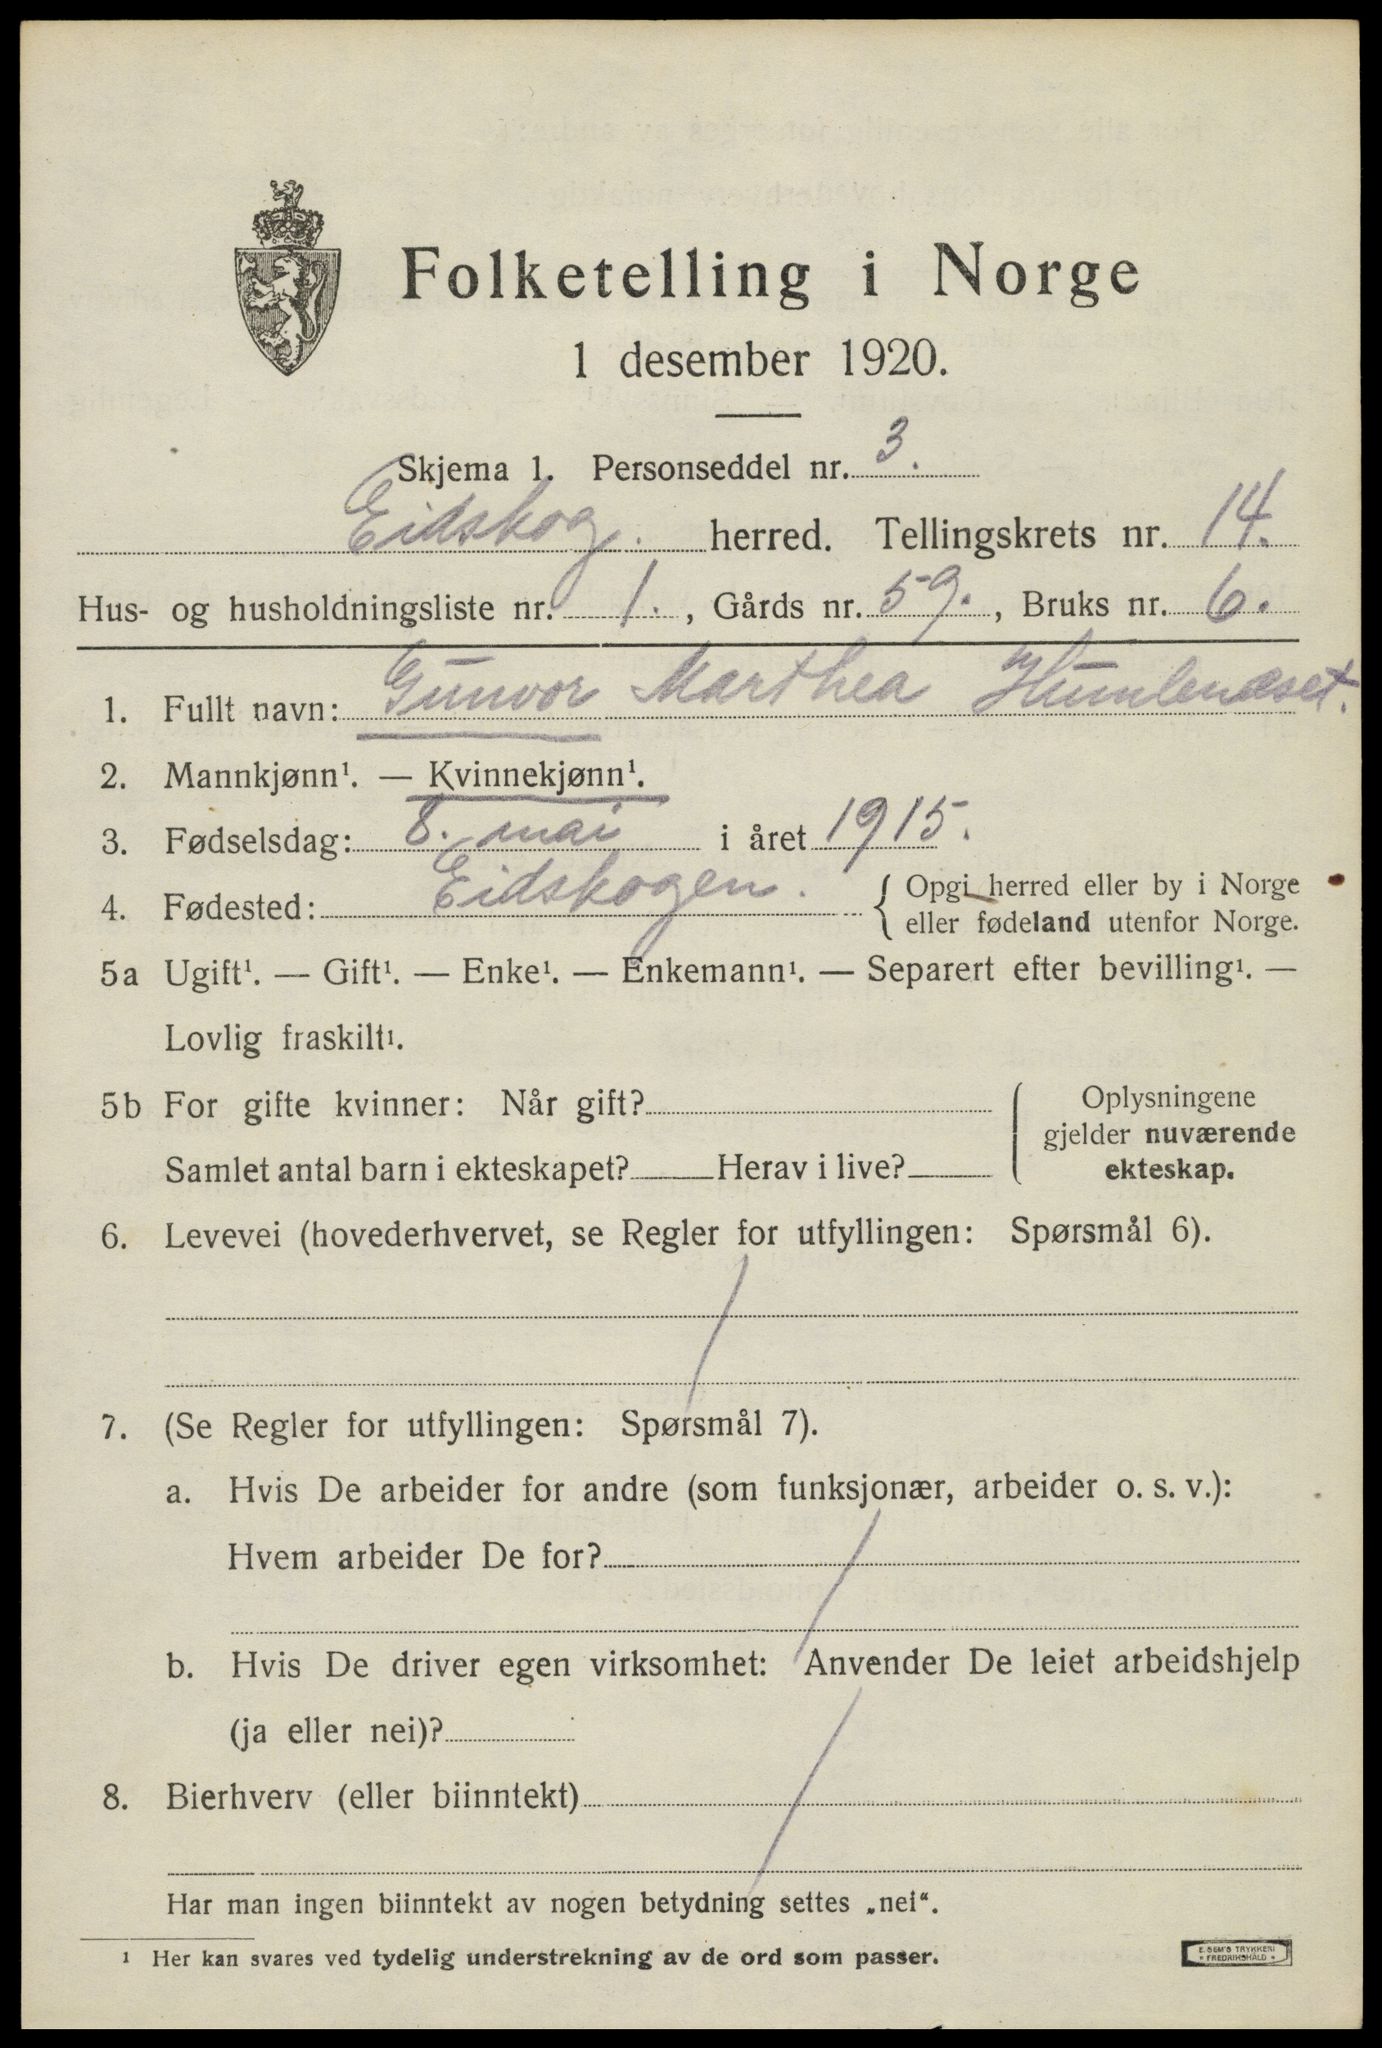 Folketelling i Norge
1 desember 1920.
Skjema 1. Personseddel nr. 3.
Eidskog. herred. Tellingskrets nr. 14.
Hus- og husholdningsliste nr. 1., Gårds nr. 59., Bruks nr. 6.
1. Fullt navn: Gunvor Marthea Humlenæset.
2. Mannkjønn¹. — Kvinnekjønn¹.
3. Fødselsdag: 8. mai i året 1915.
4. Fødested: Eidskogen. { Opgi herred eller by i Norge
eller fødeland utenfor Norge.
5a Ugift¹. — Gift¹. — Enke¹. — Enkemann¹. — Separert efter bevilling¹. —
Lovlig fraskilt¹.
5b For gifte kvinner: Når gift?
Samlet antal barn i ekteskapet? Herav i live?
Oplysningene
gjelder nuværende
ekteskap.
6. Levevei (hovederhvervet, se Regler for utfyllingen: Spørsmål 6).
7. (Se Regler for utfyllingen: Spørsmål 7).
a. Hvis De arbeider for andre (som funksjonær, arbeider o. s. v.):
Hvem arbeider De for?
b. Hvis De driver egen virksomhet: Anvender De leiet arbeidshjelp
(ja eller nei)?
8. Bierhverv (eller biinntekt)
Har man ingen biinntekt av nogen betydning settes „nei“.
¹ Her kan svares ved tydelig understrekning av de ord som passer.
E. SEM'S TRYKKERI
FREDRIKSHALD